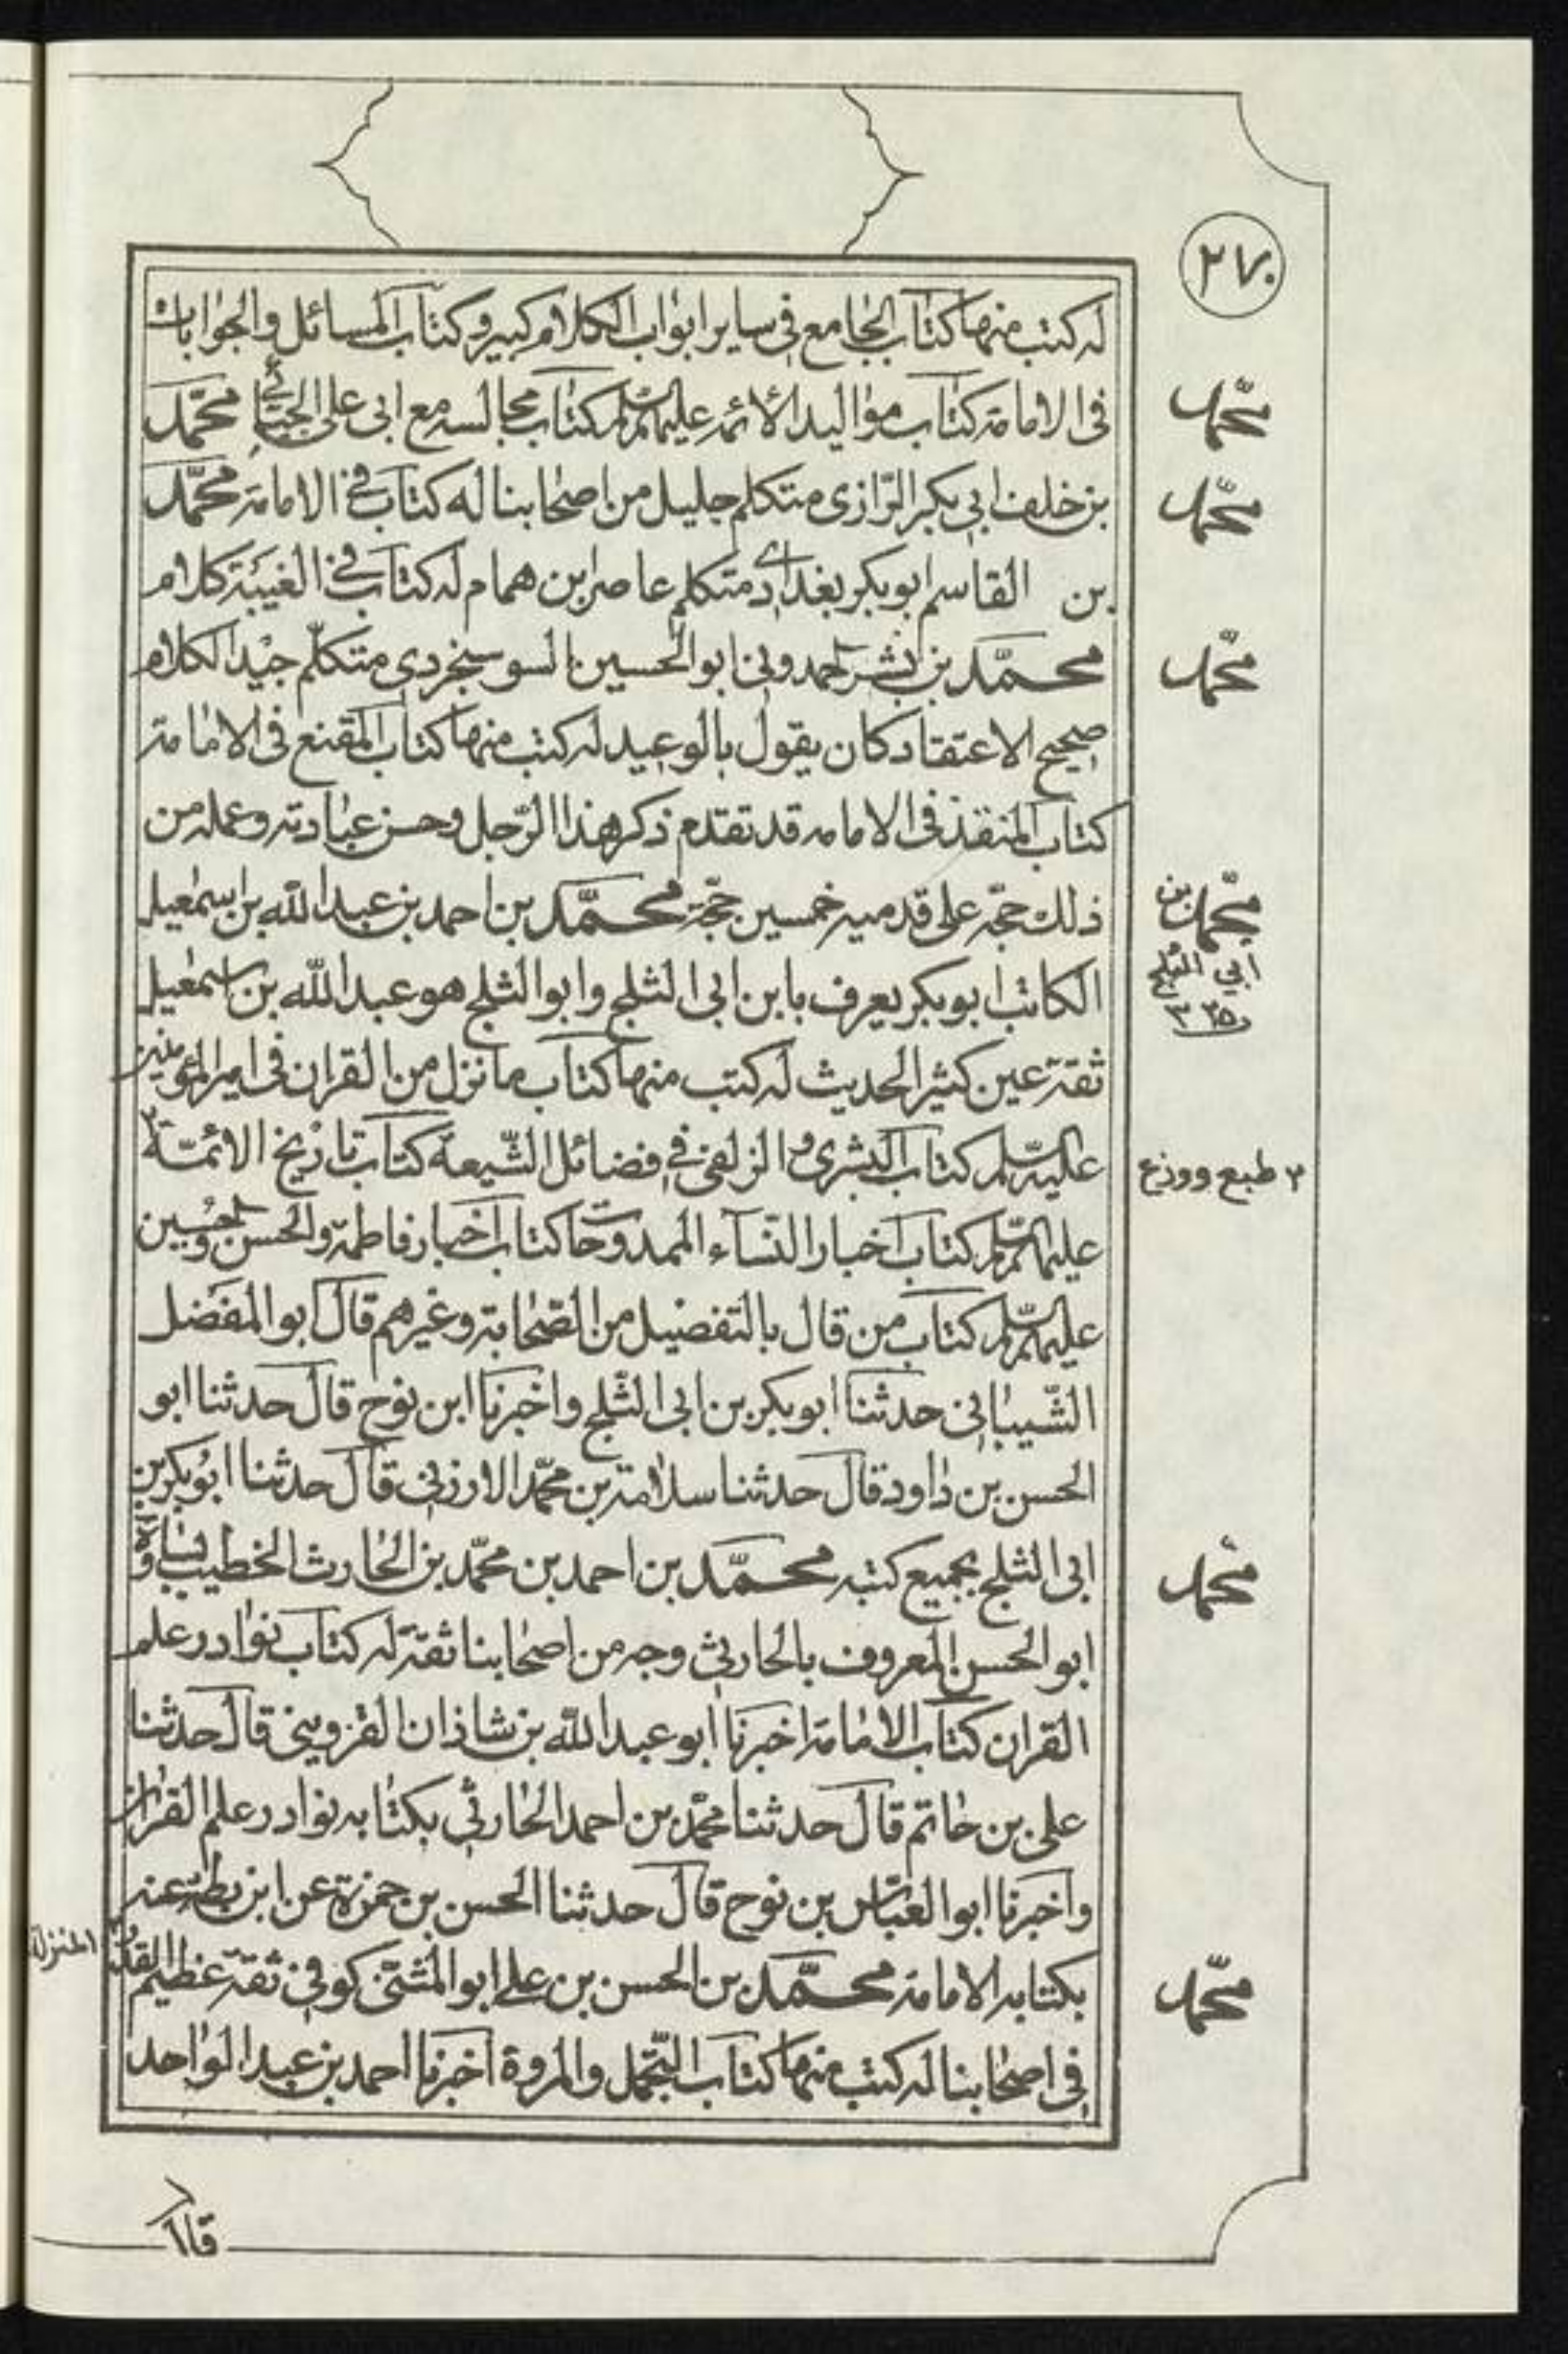 ٢٧٠
له كتب منها كتاب الجامع في ساير ابواب الكلام كبير وكتاب المسائل والجوابات
في الامامة كتاب مواليد الأئمه عليهم السلم كتاب مجالسه مع ابى على الجبائي محمد
بن خلف ابي بكر الرازي متكلم جليل من اصحابنا له كتاب في الامامة محمد
بن القاسم ابو بكر بغدادي متكلم عاصر ابن همام له كتاب في الغيبة كلام
محمد بن بشر احمدوني ابو الحسين السوسنجردي متكلم جيد الكلام
صحيح الاعتقاد كان يقول بالوعيد له كتب منها كتاب المقنع في الامامة
كتاب المنقذ في الامامه قد تقدم ذكر هذا الرجل وحسن عبادته وعمله من
ذلك حجه على قدميه خمسين حجة محمد بن احمد بن عبد الله بن اسمعيل
الكاتب ابو بكر يعرف بابن ابى الثلج وابو الثلج هو عبد الله بن اسمعيل
ثقة عين كثير الحديث له كتب منها كتاب ما نزل من القران في امير المومنين
عليه السلم كتاب البشرى و الزلفى في فضائل الشيعة كتاب تاريخ الائمة ٣
عليهم السلم كتاب اخبار النساء الممدوحات كتاب اخبار فاطمة والحسن والحسين
عليهم السلم كتاب من قال بالتفضيل من الصحابة وغيرهم قال ابو المفضل
الشيباني حدثنا ابو بكر بن ابى الثلج واخبرنا ابن نوح قال حدثنا ابو
الحسن بن داود قال حدثنا سلامة بن محمد الارزني قال حدثنا ابو بكر بن
ابى الثلج بجميع كتبه محمد بن احمد بن محمد بن الحارث الخطيب بساوة
ابو الحسن المعروف بالحارثي وجه من اصحابنا ثقة له كتاب نوادر علم
القران كتاب الامامة اخبرنا ابو عبد الله بن شاذان القزويني قال حدثنا
على بن حاتم قال حدثنا محمد بن احمد الحارثي بكتابه نوادر علم القران
واخبرنا ابو العباس بن نوح قال حدثنا الحسن بن حمزة عن ابن بطة عنه
بكتابه الامامة محمد بن الحسن بن على ابو المثنى كوفي ثقة عظيم القدر
في اصحابنا له كتب منها كتاب التجمل والمروة اخبرنا احمد بن عبد الواحد
قال
محمد
محمد
محمد
محمد بن
ابي الثلج
٣٢٥
٣ طبع ووزع
محمد
محمد
المنزلة